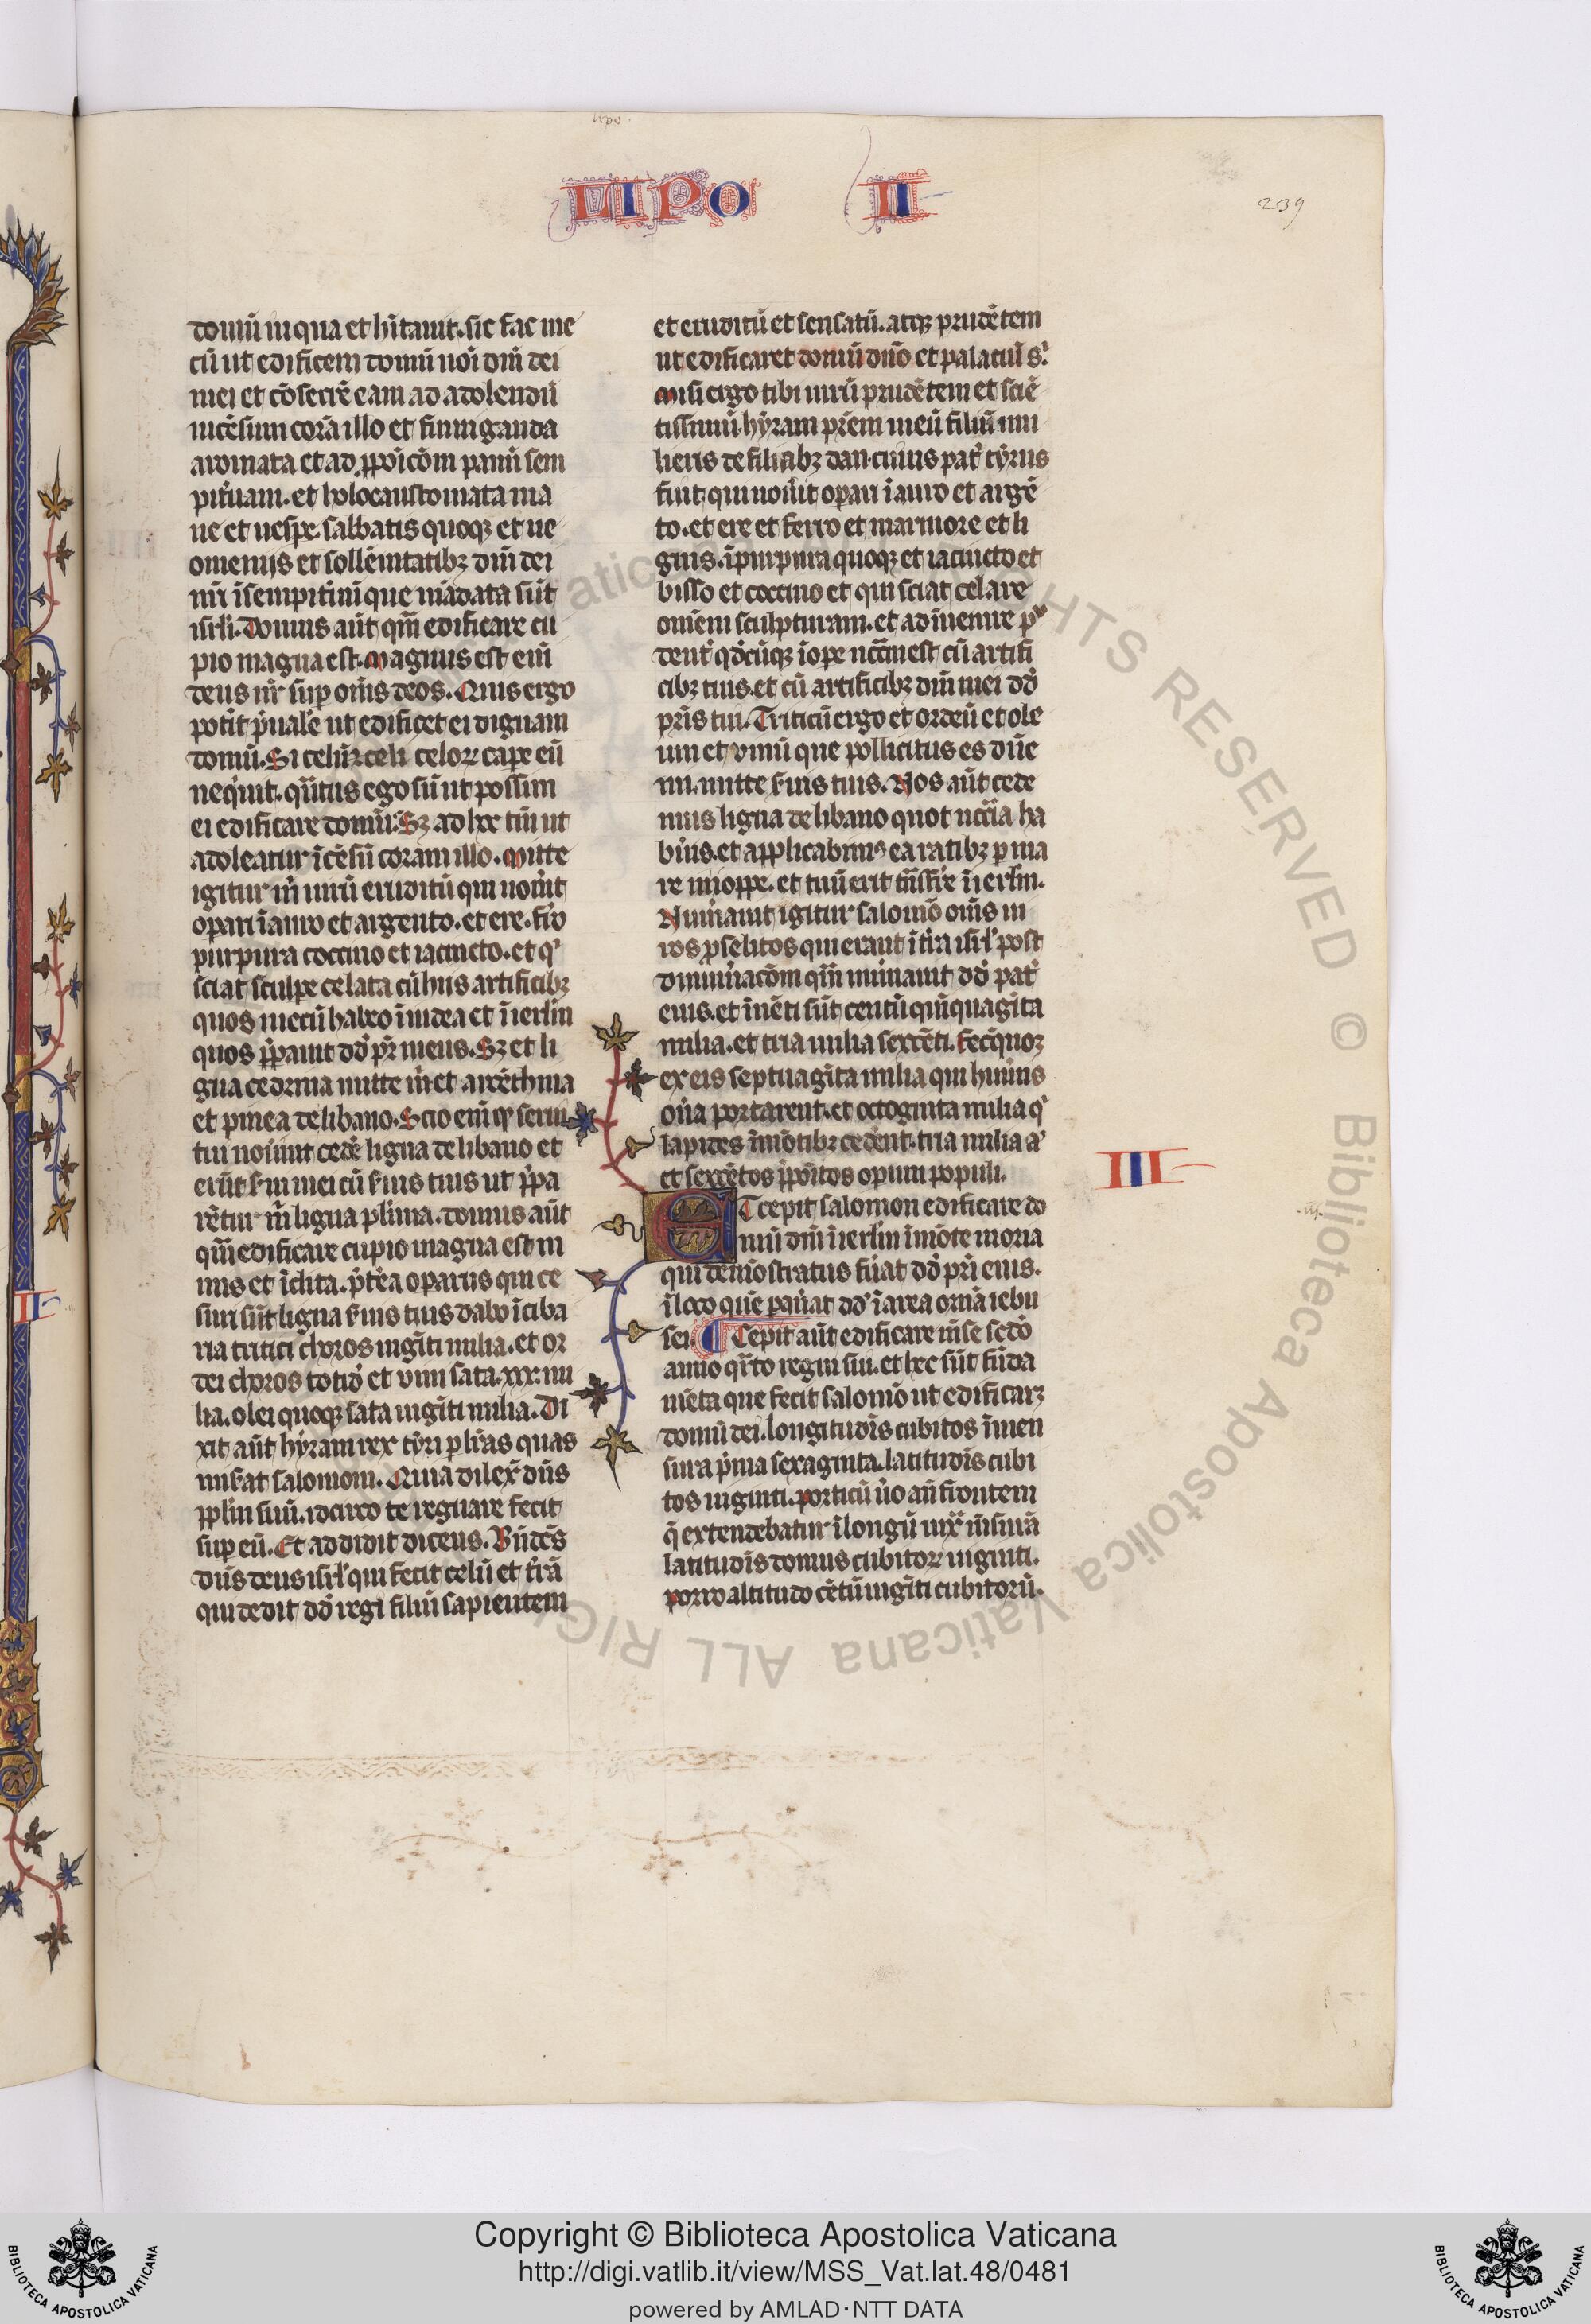 lipo.
LIPO II
239
domū in qua et hītauit. sic fac me
cū ut edificem domū noī dn̄i dei
mei et cōsecrē eam ad adolendū
incēsum corā illo et fumiganda
aromata et ad ꝓpōicōm panū sem
pit̄nam. et holocaustomata ma
ne et uespe. sabbatis quoqꝫ et ne
omenijs et sollēnitatibꝫ dn̄i dei
nr̄i ī sempit̄nū que mādata sūt
isrl̄i. Domus aūt qm̄ edificare cu
pio magna est. Magnus est enī
deus nr̄ sup om̄s deos. Quis ergo
potit p̄uale ut edificet ei dignam
domū. Si celū ⁊ celi celoꝝ cape eū
neq̄unt. qn̄tus ego sū ut possim
ei edificare domū. Sꝫ ad hoc tm̄ ut
adoleatur īcēsū coram illo. Mitte
igitur m̄ uirū eruditū qui nouit
opari ī auro et argento. et ere. f̄ro
purpura coccino et iacincto. et qͥ
sciat sculpe celata cū hiis artificibꝫ
quos mecū habeo ī iudea et ī ierlm̄
quos p̄pauit dd̄ pr̄ meus. Sꝫ et li
gna cedrina mitte m̄ et arcēthina
et pinea de libano. Scio enī qͥ serui
tui nouīt cedē ligna de libano et
erūt s̄ui mei cū s̄uis tuis ut p̄pa
rētur m̄ ligna plīma. domus aūt
qm̄ edificare cupio magna est ni
mis et īclita. p̄t̄ea oparijs qui ce
suri sūt ligna s̄uis tuis dabo ī ciba
ria tritici choros uigīti milia. et or
dei choros totid̄ et vini sata. xx. mi
lia. olei quoqꝫ sata uigīti milia. Di
xit aūt hýram rex týri p lr̄as quas
mis̄at salomoni. Quia dilex̄ dn̄s
pplm̄ suū. idcirco te regnare fecit
sup eū. Et addidit dicens. Bn̄dc̄s
dn̄s deus isrl̄ qui fecit celū et t̄rā
qui dedit dd̄ regi filiū sapientem
et eruditū et sensatū. atqꝫ prudētem
ut edificaret domū dn̄o et palaciū sͥ.
Misi ergo tibi uirū prudētem et sciē
tissimū hýram pr̄em meū filiū mu
lieris de filiabꝫ dan. cuius pat̄ týrus
fuit. qui nouit opari ī auro et argē
to. et ere et ferro et marmore et li
gnis. ī purpura quoqꝫ et iacincto et
bisso et coccino et qui sciat celare
omēm sculpturam. et adīuenire pͬ
dent̄ qd̄cūqꝫ ī ope nc̄c̄ium est cū artifi
cibꝫ tuis. et cū artificibꝫ dn̄i mei dd̄
pr̄is tui. Triticū ergo et ordeū et ole
um et vinū que pollicitus es dn̄e
mi. mitte s̄uis tuis. Nos aūt cede
mus ligna de libano quot nc̄c̄ia ha
bīus. et applicabimꝰ ea ratibꝫ p ma
re in ioppe. et tuū erit tn̄sfr̄e ī ierlm̄.
Num̄auit igitur salomō om̄s ui
ros pselitos qui erant ī t̄ra isrl̄ post
dinum̄acōm qm̄ num̄auit dd̄ pat̄
eius. et īuēti sūt centū quīquagīta
milia. et tria milia sexcēti. Fecitqꝫ
ex eis septuagīta milia qui hum̄is
on̄a portarent. et octoginta milia qͥ
lapides ī mōtibꝫ cedent. tria milia aͥ
et sexcētos p̄poītos operum populi.
III
ET cepit salomon edificare do
mū dn̄i ī ierlm̄ ī mōte moria
qui demōstratus fūat dd̄ pr̄i eius.
ī loco quē pau̇at dd̄ ī area ornā iebu
sei. Cepit aūt edificare mēse sc̄do
anno q̄rto regni sui. et hec sūt fūda
mēta que fecit salomō ut edificarꝫ
domū dei. longitudīs cubitos ī men
sura p̄ma sexaginta. latitudīs cubi
tos uiginti. porticū ūo an̄ frontem
q̄ extendebatur ī longū iuxͣ m̄surā
latitudīs domus cubitoꝝ uiginti.
porro altitudo cētū uigīti cubitorū.
Biblioteca Apostolica Vaticana ALL RIGHTS RESERVED ©
Copyright © Biblioteca Apostolica Vaticana
http://digi.vatlib.it/view/MSS_Vat.lat.48/0481
powered by AMLAD·NTT DATA
BIBLIOTECA APOSTOLICA VATICANA
BIBLIOTECA APOSTOLICA VATICANA